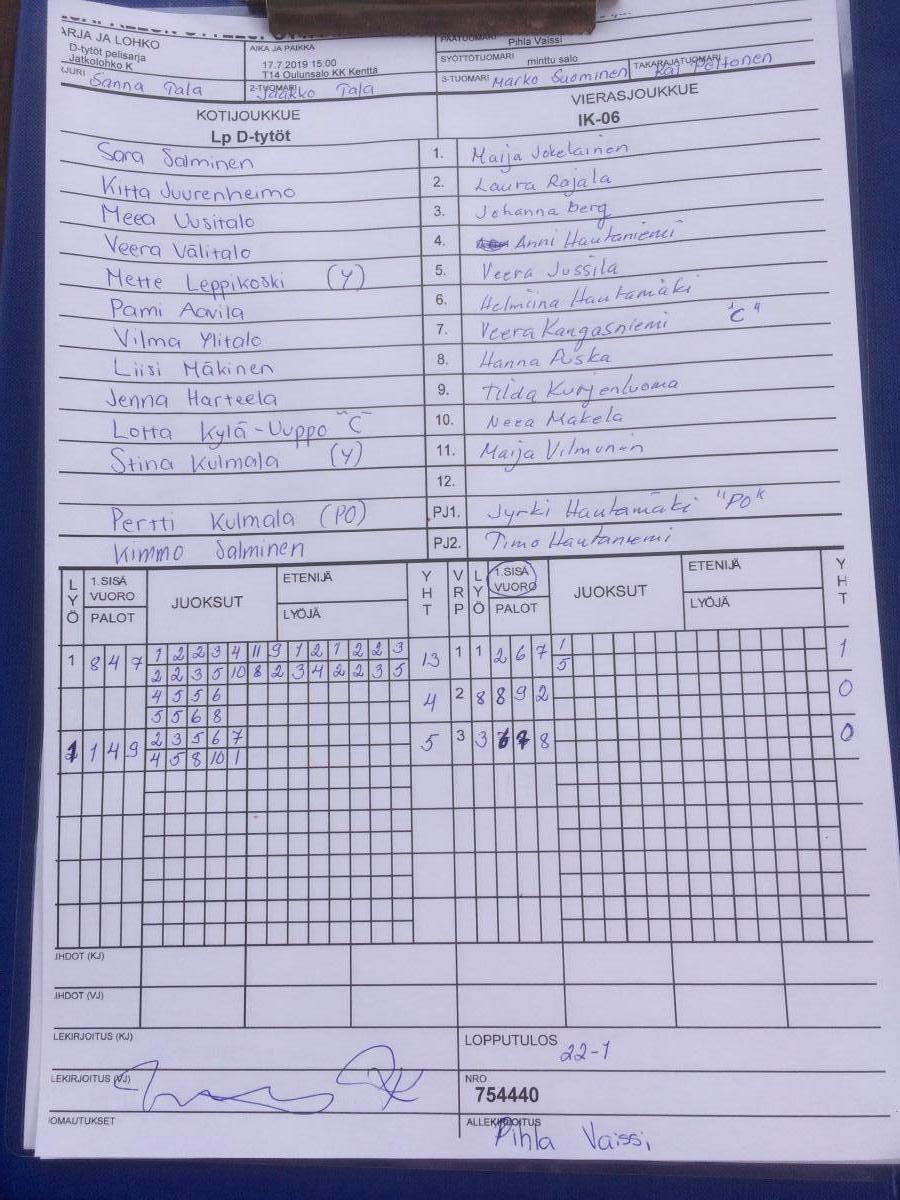 ARJA JA LOHKO
D-tytöt pelisarja
Jatkolohko K
AIKA JA PAIKKA
17.7.2019 15:00
T14 Oulunsalo KK Kenttä
PÄÄTUOMARI
Pihla Vaissi
SYÖTTÖTUOMARI minttu salo
JURI Sanna Tala
2-TUOMARI Jaakko Tala
3-TUOMARI Marko Suominen
TAKARAJATUOMARI Kai Peltonen
KOTIJOUKKUE
Lp D-tytöt
VIERASJOUKKUE
IK-06
Sara Salminen 1. Maija Jokelainen
Kitta Juurenheimo 2. Laura Rajala
Meea Uusitalo 3. Johanna Berg
Veera Välitalo 4. Anni Hautaniemi
Mette Leppikoski (Y) 5. Veera Jussila
Pami Aavila 6. Helmiina Hautamäki
Vilma Ylitalo 7. Veera Kangasniemi "C"
Liisi Mäkinen 8. Hanna Puska
Jenna Harteela 9. Tilda Kurjenluoma
Lotta Kylä-Uuppo "C" 10. Neea Makela
Stina Kulmala (Y) 11. Maija Vilmunen
12.
Pertti Kulmala (PO) PJ1. Jyrki Hautamäki "PO"
Kimmo Salminen PJ2. Timo Hautaniemi
LYÖ 1.SISÄ VUORO PALOT JUOKSUT ETENIJÄ LYÖJÄ YHT VRP LYÖ 1.SISÄ VUORO PALOT JUOKSUT ETENIJÄ LYÖJÄ YHT
1 8 4 7 1 2 2 3 4 11 9 1 2 1 2 2 3 13 1 1 2 6 7 1 1
2 2 3 5 10 8 2 3 4 2 2 3 5 5
4 5 5 6 4 2 8 8 9 2 0
5 5 6 8
1 1 4 9 2 3 5 6 7 5 3 3 6 7 8 0
4 5 8 10 1
JHDOT (KJ)
JHDOT (VJ)
LEKIRJOITUS (KJ)
LOPPUTULOS
22-1
LEKIRJOITUS (VJ)
NRO
754440
OMAUTUKSET
ALLEKIRJOITUS
Pihla Vaissi